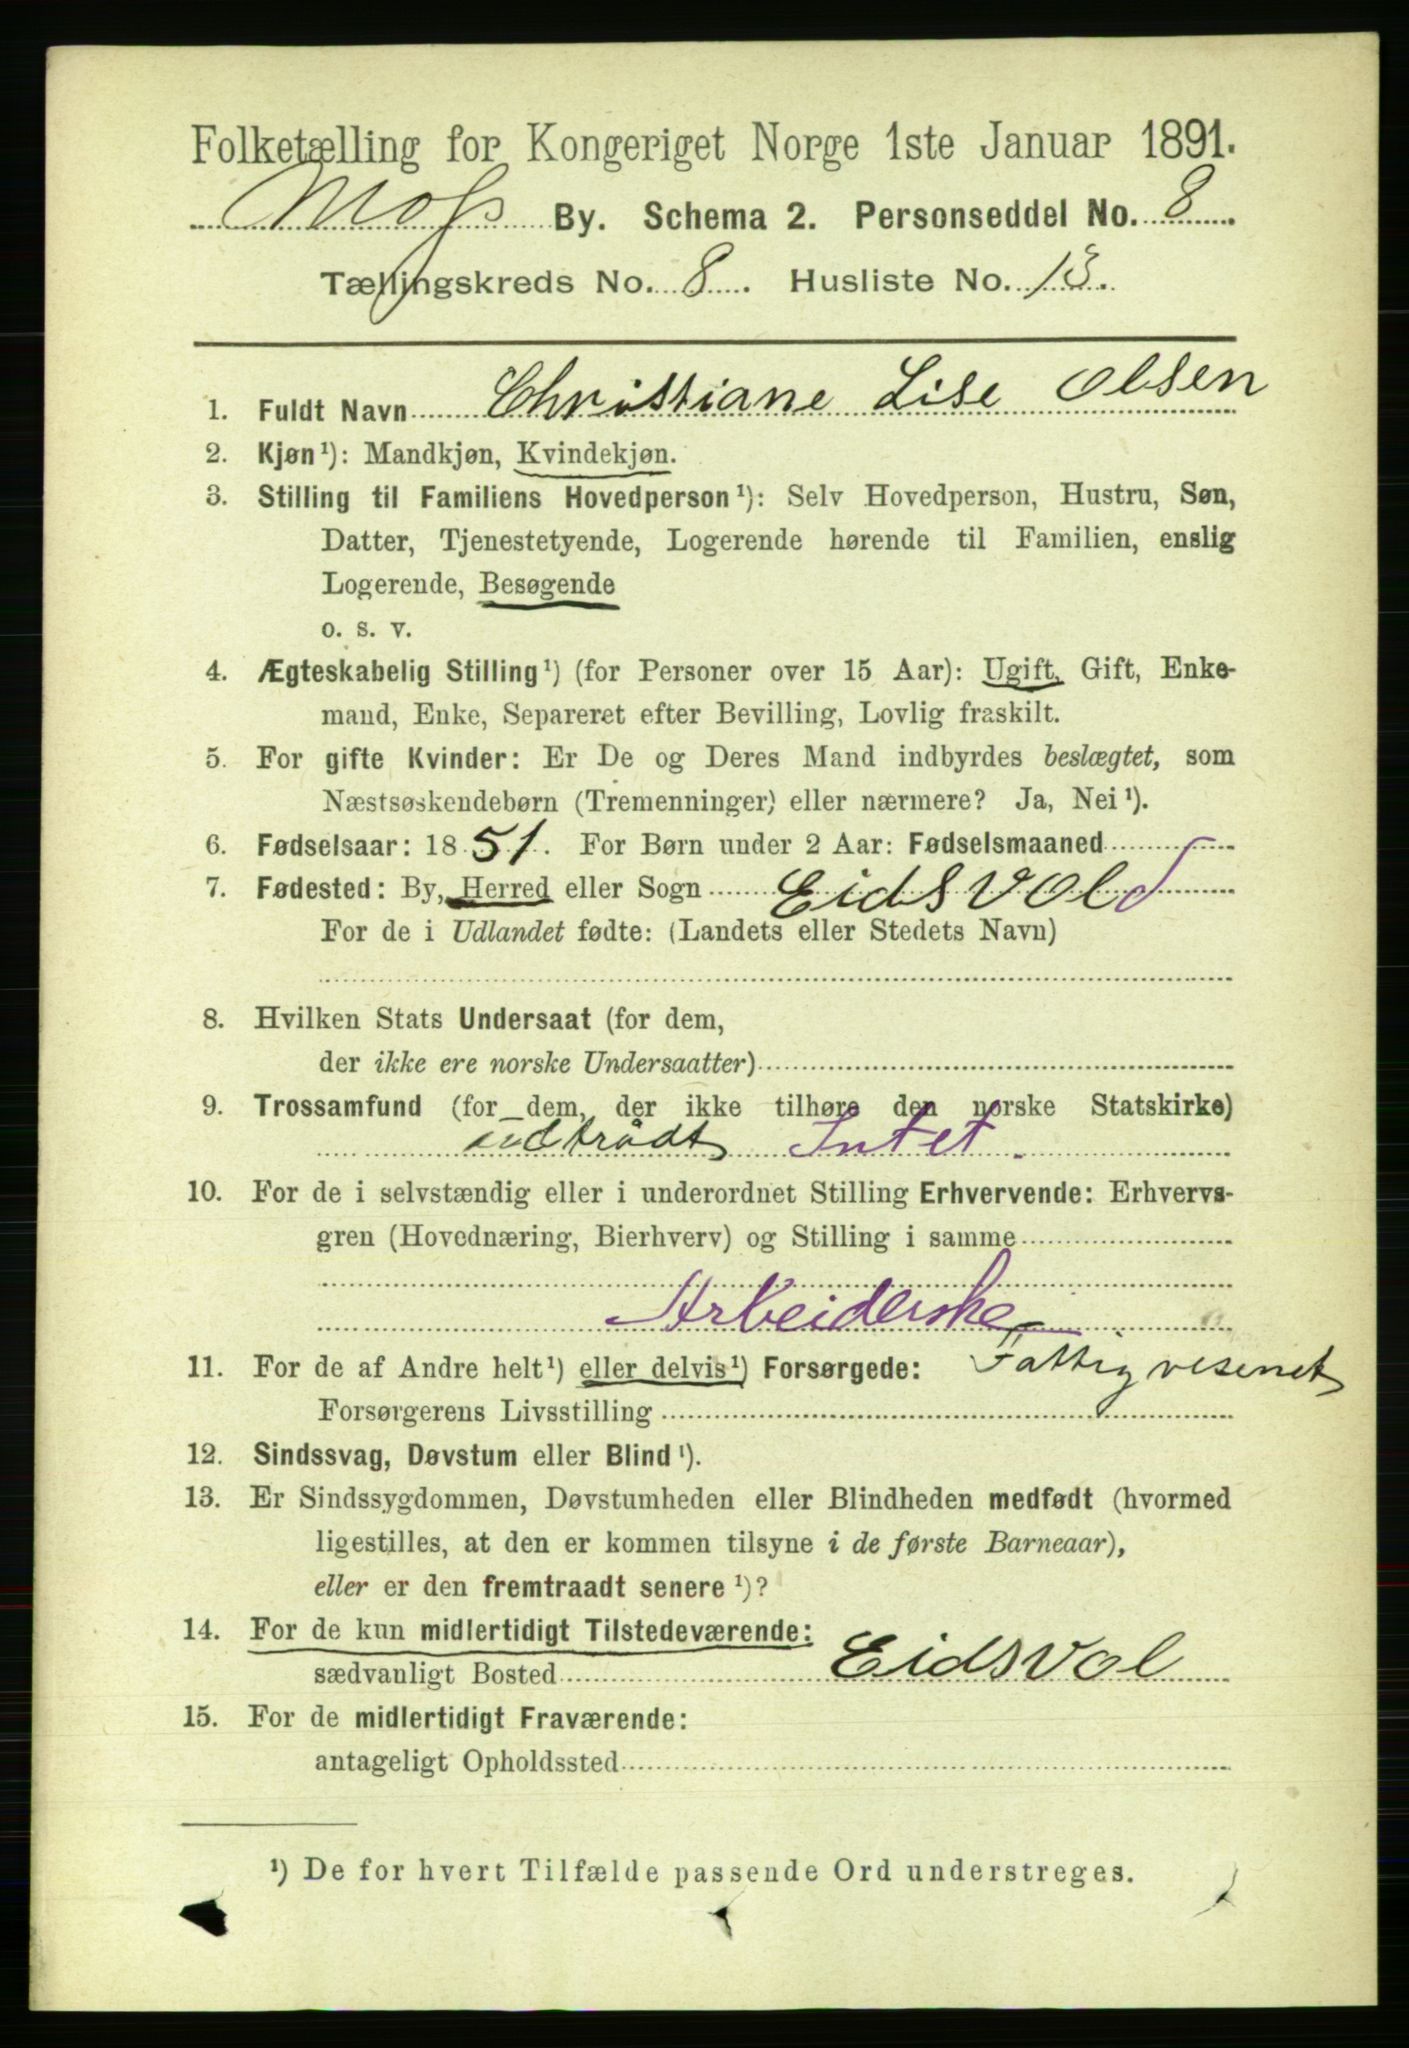 Folketælling for Kongeriget Norge 1ste Januar 1891.
Moss By. Schema 2. Personseddel No. 8
Tællingskreds No. 8. Husliste No. 13.
1. Fuldt Navn Christiane Lise Olsen
2. Kjøn¹): Mandkjøn, Kvindekjøn.
3. Stilling til Familiens Hovedperson¹): Selv Hovedperson, Hustru, Søn,
Datter, Tjenestetyende, Logerende hørende til Familien, enslig
Logerende, Besøgende
o. s. v.
4. Ægteskabelig Stilling¹) (for Personer over 15 Aar): Ugift, Gift, Enke-
mand, Enke, Separeret efter Bevilling, Lovlig fraskilt.
5. For gifte Kvinder: Er De og Deres Mand indbyrdes beslægtet, som
Næstsøskendebørn (Tremenninger) eller nærmere? Ja, Nei¹).
6. Fødselsaar: 1851. For Børn under 2 Aar: Fødselsmaaned
7. Fødested: By, Herred eller Sogn Eidsvold
For de i Udlandet fødte: (Landets eller Stedets Navn)
8. Hvilken Stats Undersaat (for dem,
der ikke ere norske Undersaatter)
9. Trossamfund (for dem, der ikke tilhøre den norske Statskirke)
udtrådt Intet.
10. For de i selvstændig eller i underordnet Stilling Erhvervende: Erhvervs-
gren (Hovednæring, Bierhverv) og Stilling i samme
Arbeiderske
11. For de af Andre helt¹) eller delvis¹) Forsørgede: Fattigvesenet
Forsørgerens Livsstilling
12. Sindssvag, Døvstum eller Blind¹).
13. Er Sindssygdommen, Døvstumheden eller Blindheden medfødt (hvormed
ligestilles, at den er kommen tilsyne i de første Barneaar),
eller er den fremtraadt senere¹)?
14. For de kun midlertidigt Tilstedeværende:
sædvanligt Bosted Eidsvol
15. For de midlertidigt Fraværende:
antageligt Opholdssted
¹) De for hvert Tilfælde passende Ord understreges.